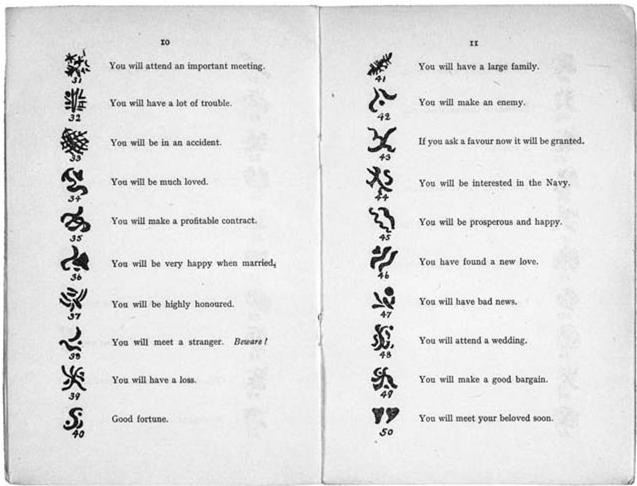 10
31 You will attend an important meeting.
32 You will have a lot of trouble.
33 You will be in an accident.
34 You will be much loved.
35 You will make a profitable contract.
36 You will be very happy when married.
37 You will be highly honoured.
38 You will meet a stranger. Beware!
39 You will have a loss.
40 Good fortune.
11
41 You will have a large family.
42 You will make an enemy.
43 If you ask a favour now it will be granted.
44 You will be interested in the Navy.
45 You will be prosperous and happy.
46 You have found a new love.
47 You will have bad news.
48 You will attend a wedding.
49 You will make a good bargain.
50 You will meet your beloved soon.